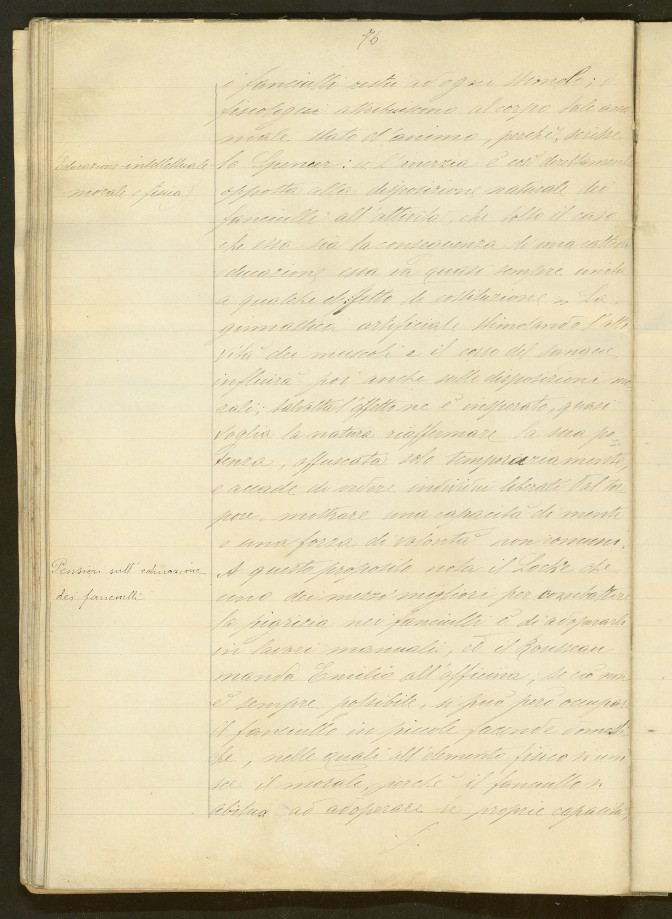 76
i fanciulli resta ad ogni stimolo; i
fisiologici attribuiscono al corpo tale ano
male stato d'animo, perchè, scrive
lo Spencer: "L'inerzia è così direttamente
Educazione intellettuale
morale e fisica
opposta alla disposizione naturale dei
fanciulli all'attività, che tolto il caso
che essa sia la conseguenza di una cattiva
educazione essa va quasi sempre unita
a qualche difetto di costituzione". La
ginnastica artificiale stimolando l'atti
vità dei muscoli e il corso del sangue
influirà poi anche sulle disposizioni mo-
rali; talvolta l'effetto ne è insperato, quasi
voglia la natura riaffermare la sua po-
tenza, offuscata solo temporaneamente,
e accade di vedere individui liberati dal tor
pore mostrare una capacità di mente
e una forza di volontà non comuni.
Pensieri sull'educazione
dei fanciulli
A questo proposito nota il Locke che
uno dei mezzi migliori per combattere
la pigrizia nei fanciulli è di adoperarli
in lavori manuali, ed il Rousseau
manda Emilio all'officina, se ciò non
è sempre possibile, si può però occupare
il fanciullo in piccole faccende domesti
che, nelle quali all'elemento fisico si uni
sce il morale, perchè il fanciullo si
abitua ad adoperare le proprie capacità,